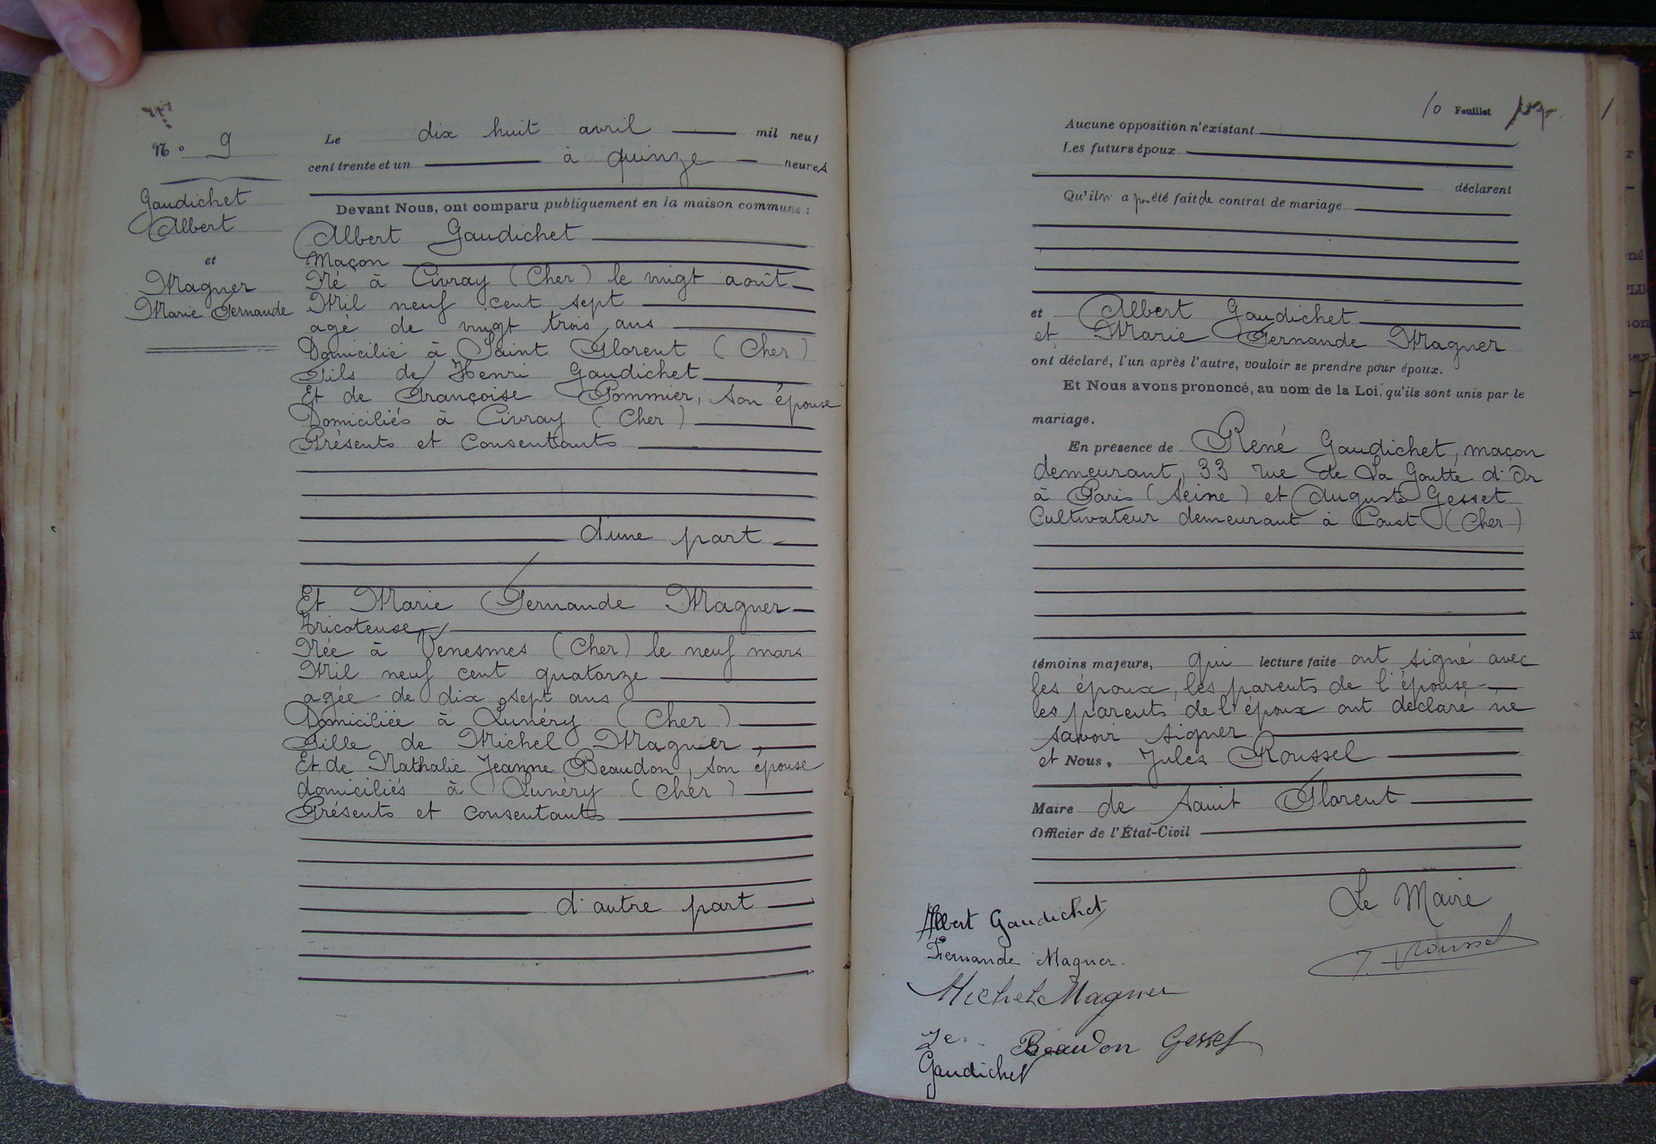 N° 9
Gaudichet
Albert
et
Magner
Marie Fernande
Le dix huit avril mil neuf
cent trente et un à quinze heures
Devant Nous, ont comparu publiquement en la maison commune :
Albert Gaudichet
Maçon
Né à Civray (Cher) le vingt août
Mil neuf cent sept
agé de vingt trois ans
Domicilié à Saint Florent (Cher)
Fils de Henri Gaudichet
Et de Françoise Pommier, son épouse
Domiciliés à Civray (Cher)
Présents et consentants
d'une part
Et Marie Fernande Magner
tricoteuse
Née à Venesmes (Cher) le neuf mars
Mil neuf cent quatorze
agée de dix sept ans
Domiciliée à Lunéry (Cher)
Fille de Michel Magner,
Et de Nathalie Jeanne Beaudon, son épouse
domiciliés à Lunéry (Cher)
Présents et consentants
d'autre part
10 Feuillet
Aucune opposition n'existant
Les futurs époux
déclarent
Qu'il n'a pas été fait de contrat de mariage
et Albert Gaudichet
et Marie Fernande Magner
ont déclaré, l'un après l'autre, vouloir se prendre pour époux.
Et Nous avons prononcé, au nom de la Loi, qu'ils sont unis par le
mariage.
En présence de René Gaudichet, maçon
demeurant, 33 rue de La Goutte d'Or
à Paris (Seine) et Auguste Gesset
Cultivateur demeurant à Coust (Cher)
témoins majeurs, qui lecture faite ont signé avec
les époux, les parents de l'épouse
les parents de l'époux ont déclaré ne
savoir signer
et Nous, Jules Roussel
Maire de Saint Florent
Officier de l'État-Civil
Le Maire
Albert Gaudichet
J. Roussel
Fernande Magner
Michel Magner
Beaudon Gesset
Gaudichet